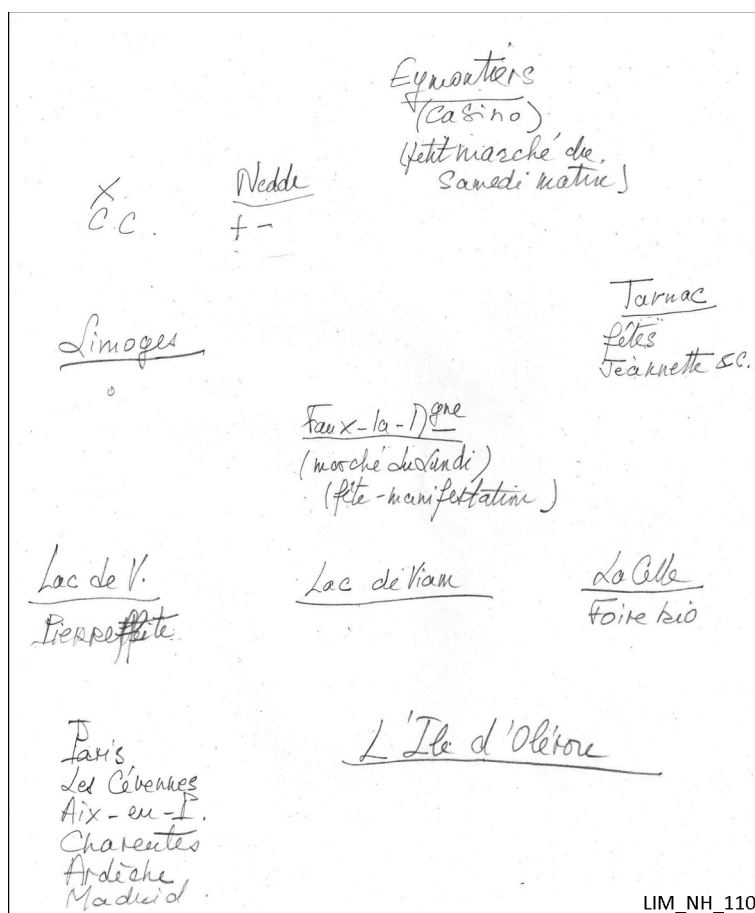 Eymoutiers
(Casino)
(petit marché du
Samedi matin)
X
C.C.
Nedde
+ -
Limoges
Tarnac
fêtes
Jeannette &C.
Faux-la-Mgne
(marché du Lundi)
(fête-manifestation)
Lac de V.
Pierrefitte
Lac de Viam
La Celle
Foire bio
Paris
Les Cévennes
Aix-en-P.
Charentes
Ardèche
Madrid
L'Ile d'Oléron
LIM_NH_110